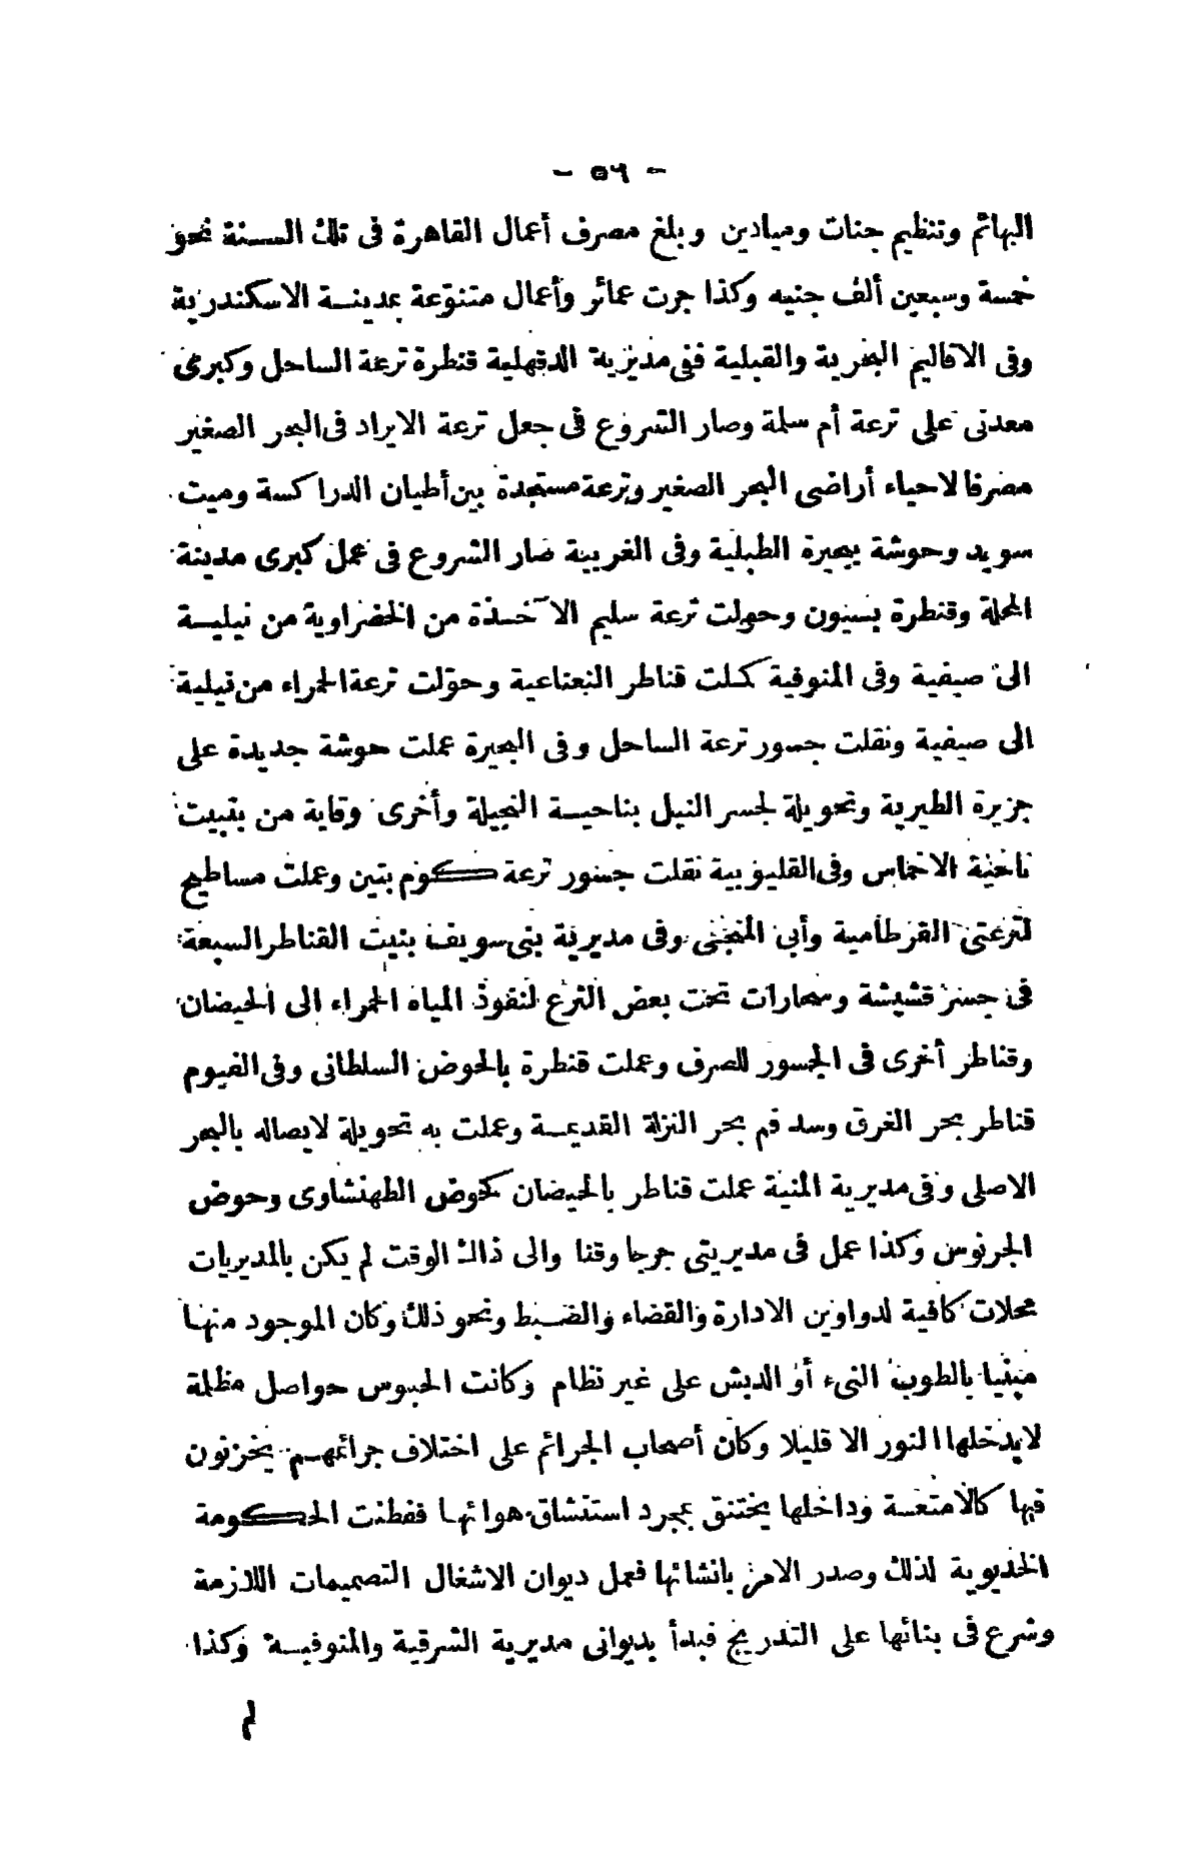 - ٥٦ -
البهائم وتنظيم جنات وميادين وبلغ مصرف أعمال القاهرة فى تلك السنة نحو
خمسة وسبعين ألف جنيه وكذا جرت عمائر وأعمال متنوّعة بمدينة الاسكندرية
وفى الاقاليم البحرية والقبلية ففى مديرية الدقهلية قنطرة ترعة الساحل وكبرى
معدنى على ترعة أم سلمة وصار الشروع فى جعل ترعة الايراد فى البحر الصغير
مصرفا لاحياء أراضى البحر الصغير وترعة مستجدة بين أطيان الدراكسة وميت
سويد وحوشة ببحيرة الطبلية وفى الغربية صار الشروع فى عمل كبرى مدينة
المحلة وقنطرة بسيون وحولت ترعة سليم الآخذة من الخضراوية من نيلية
الى صيفية وفى المنوفية كملت قناطر النعناعية وحوّلت ترعة الحمراء من نيلية
الى صيفية ونقلت جسور ترعة الساحل وفى البحيرة عملت حوشة جديدة على
جزيرة الطيرية وتحويلة لجسر النيل بناحية النجيلة وأخرى وقاية من بتبيت
ناحية الاخماس وفى القليوبية نقلت جسور ترعة كوم بتين وعملت مساطيح
لترعتى القرطامية وأبى المنجى وفى مديرية بنى سويف بنيت القناطر السبعة
فى جسر قشيشة وسحارات تحت بعض الترع لنفوذ المياه الحمراء الى الحيضان
وقناطر أخرى فى الجسور للصرف وعملت قنطرة بالحوض السلطانى وفى الفيوم
قناطر بحر الغرق وسد فم بحر النزلة القديمة وعملت به تحويلة لايصاله بالبحر
الاصلى وفى مديرية المنية عملت قناطر بالحيضان كحوض الطهنشاوى وحوض
الجرنوس وكذا عمل فى مديريتى جرجا وقنا والى ذاك الوقت لم يكن بالمديريات
محلات كافية لدواوين الادارة والقضاء والضبط ونحو ذلك وكان الموجود منها
مبنيا بالطوب النىء أو الدبش على غير نظام وكانت الحبوس حواصل مظلمة
لايدخلها النور الا قليلا وكان أصحاب الجرائم على اختلاف جرائمهم يخزنون
فيها كالامتعة وداخلها يختنق بمجرد استنشاق هوائها ففطنت الحكومة
الخديوية لذلك وصدر الامر بانشائها فعمل ديوان الاشغال التصميمات اللازمة
وشرع فى بنائها على التدريج فبدأ بديوانى مديرية الشرقية والمنوفية وكذا